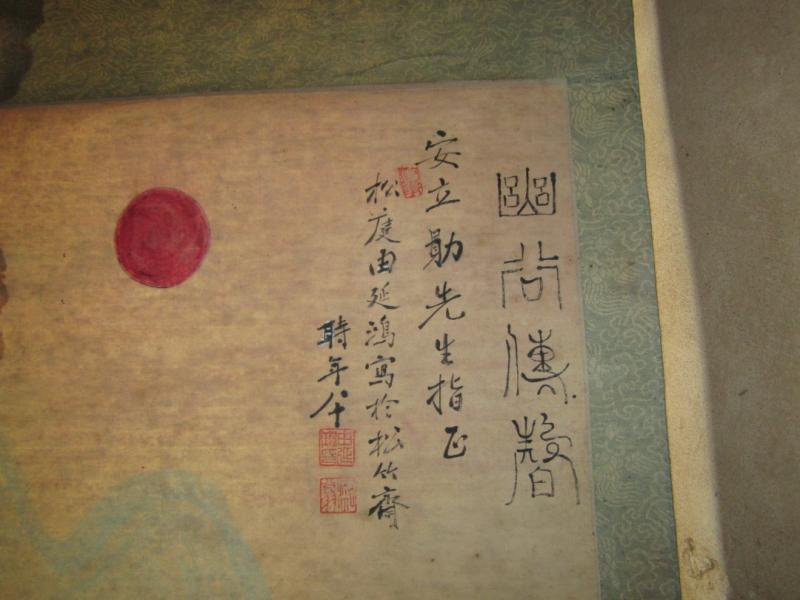 幽谷傳馨
安立勛先生指正
松庭由延鴻寫於松竹齋
時年八十